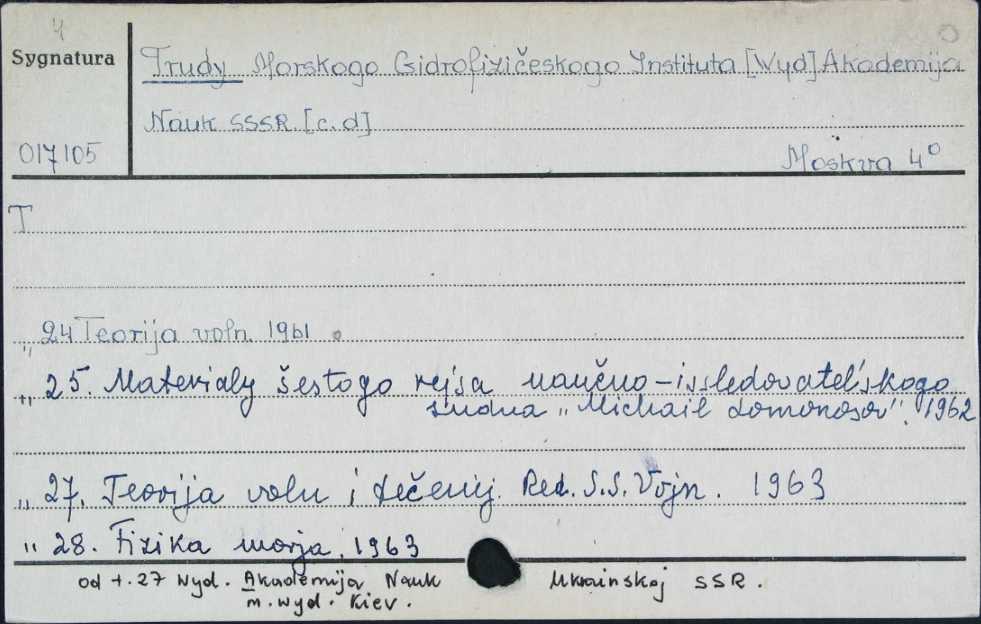 4
Sygnatura
Trudy Morskogo Gidrofizičeskogo Instituta [Wyd] Akademija
Nauk SSSR. [c.d]
017105
Moskva 4°
T
" 24 Teorija voln. 1961
" 25. Materialy šestogo rejsa naučno-issledovatel'skogo
sudna "Michail Lomonosov". 1962
" 27. Teorija voln i tečenij. Red. S.S. Vojn. 1963
" 28. Fizika morja. 1963
od t. 27 wyd. Akademija Nauk Ukrainskoj SSR.
m. wyd. Kiev.